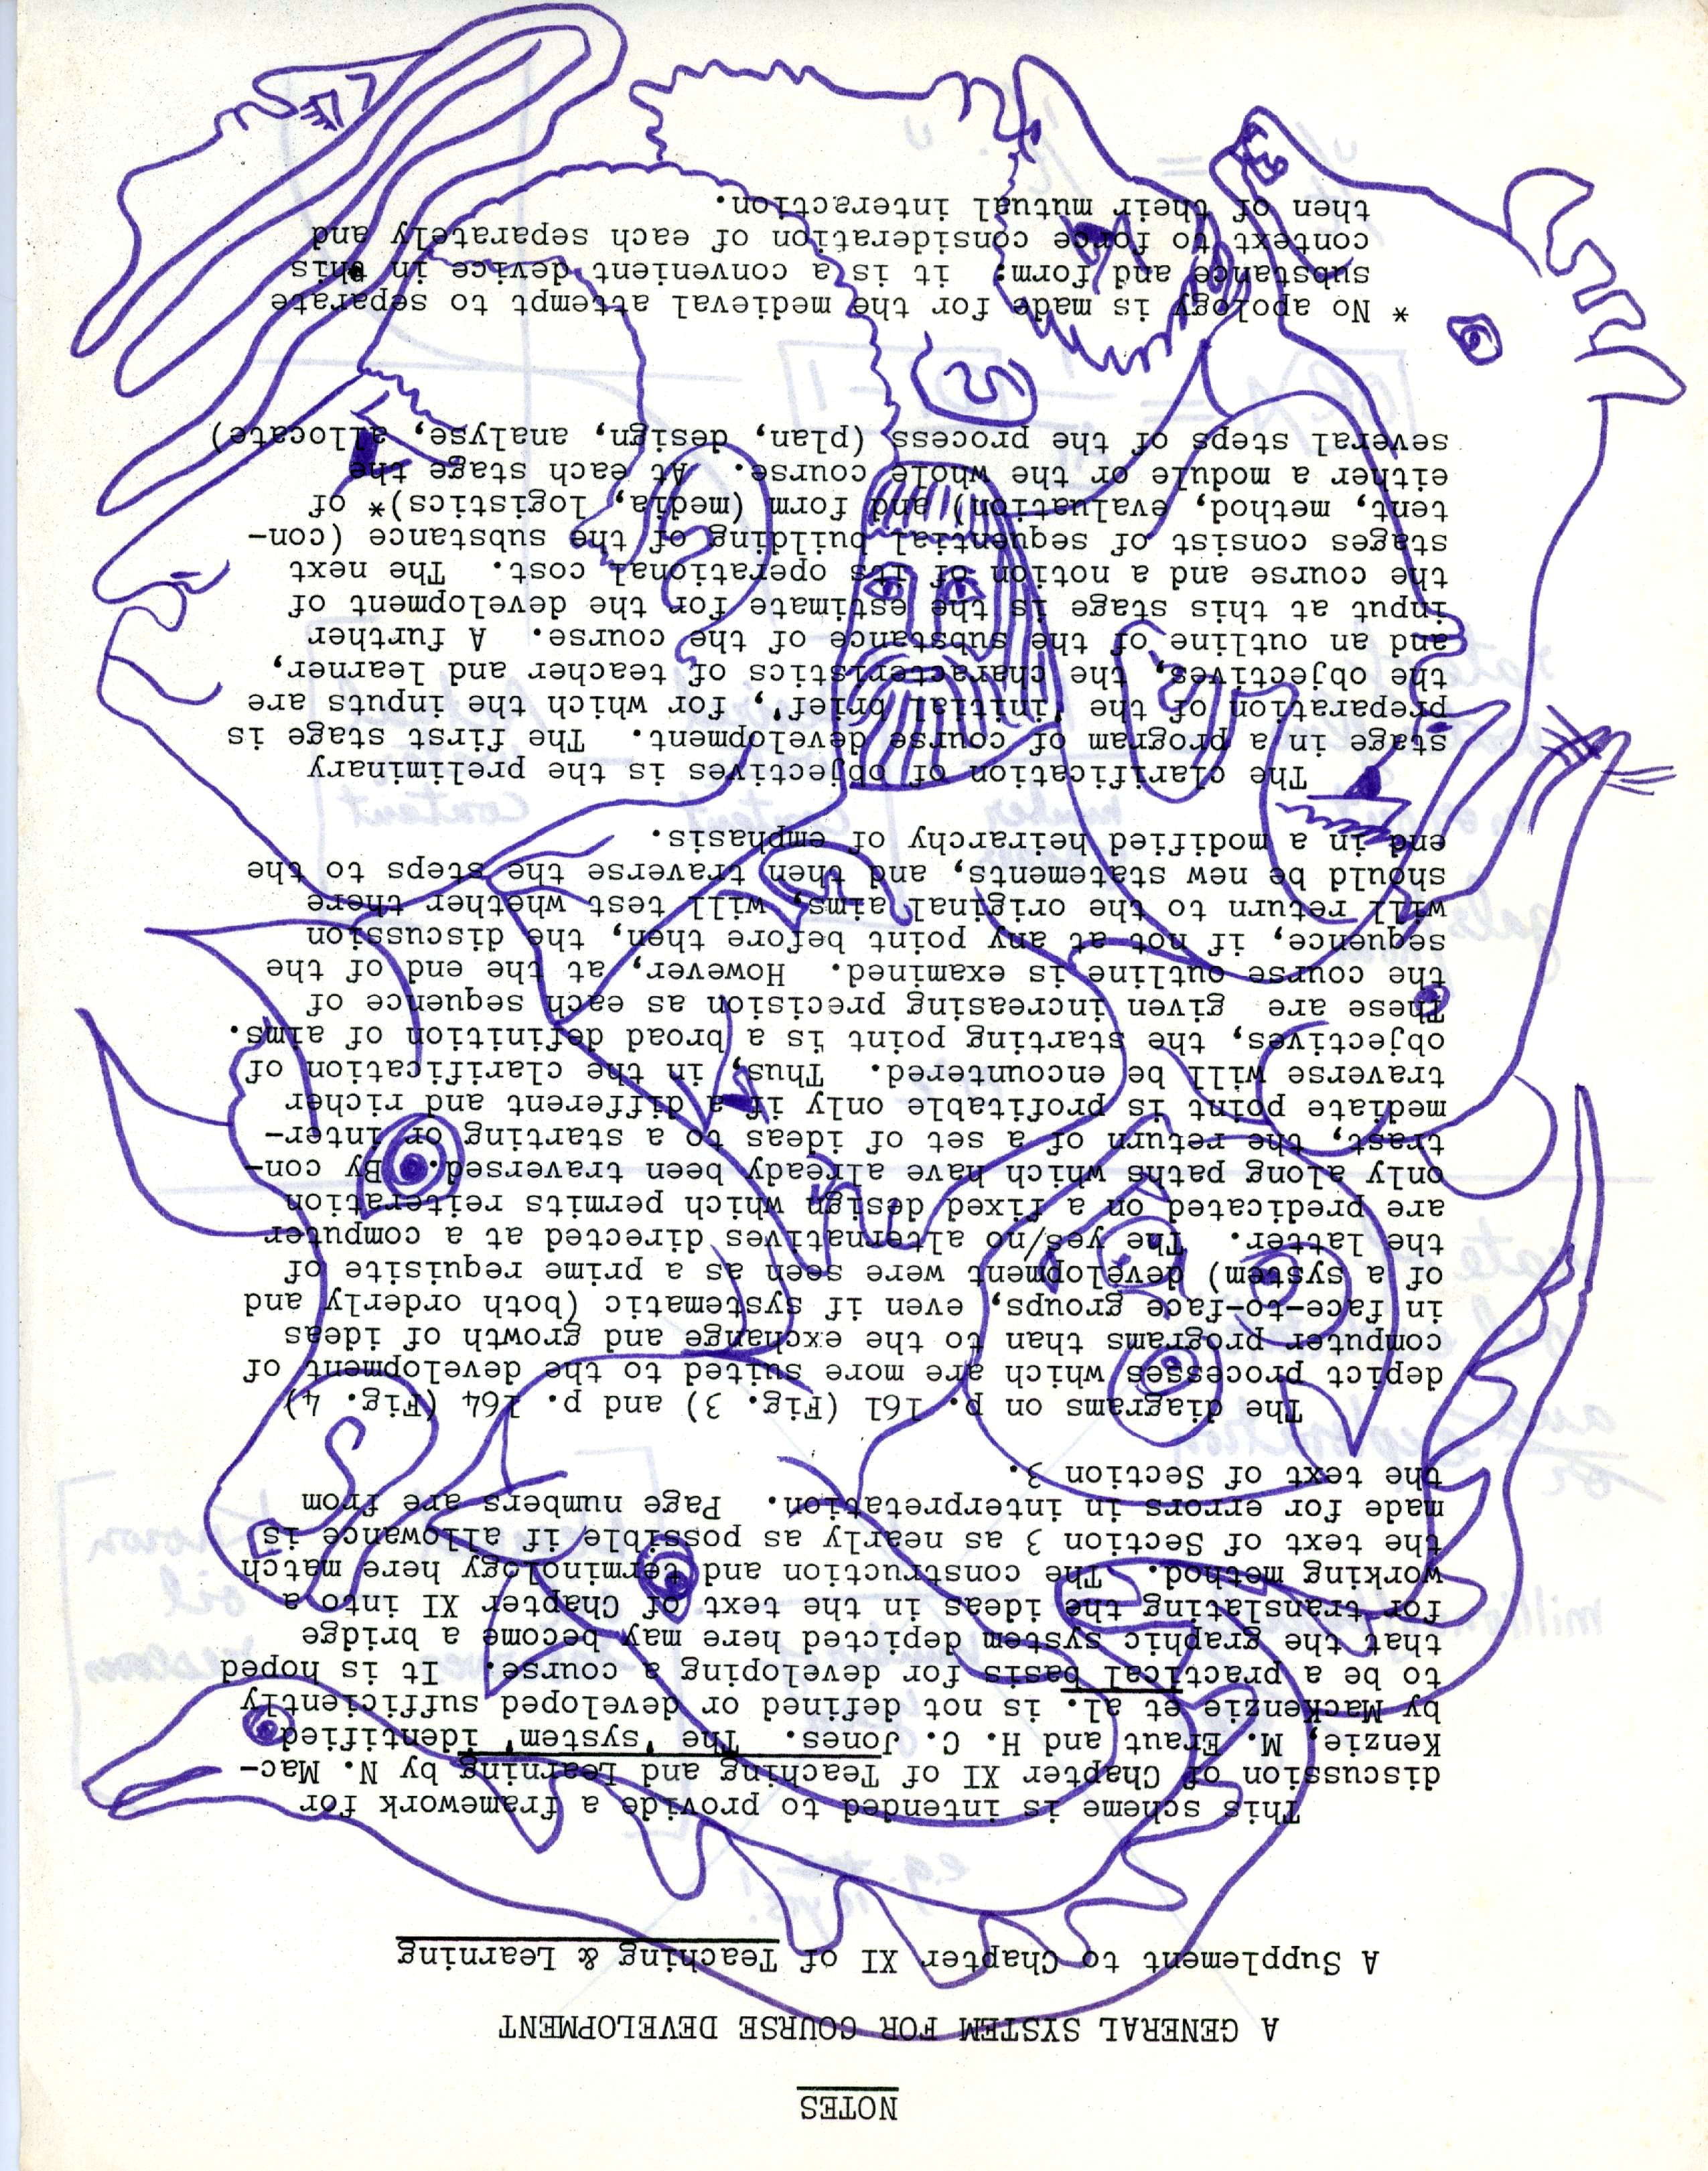 NOTES
A GENERAL SYSTEM FOR COURSE DEVELOPMENT
A Supplement to Chapter XI of Teaching & Learning
This scheme is intended to provide a framework for
discussion of Chapter XI of Teaching and Learning by N. Mac-
Kenzie, M. Eraut and H. C. Jones. The 'system' identified
by MacKenzie et al. is not defined or developed sufficiently
to be a practical basis for developing a course. It is hoped
that the graphic system depicted here may become a bridge
for translating the ideas in the text of Chapter XI into a
working method. The construction and terminology here match
the text of Section 3 as nearly as possible if allowance is
made for errors in interpretation. Page numbers are from
the text of Section 3.
The diagrams on p. 161 (Fig. 3) and p. 164 (Fig. 4)
depict processes which are more suited to the development of
computer programs than to the exchange and growth of ideas
in face-to-face groups, even if systematic (both orderly and
of a system) development were seen as a prime requisite of
the latter. The yes/no alternatives directed at a computer
are predicated on a fixed design which permits reiteration
only along paths which have already been traversed. By con-
trast, the return of a set of ideas to a starting or inter-
mediate point is profitable only if a different and richer
traverse will be encountered. Thus, in the clarification of
objectives, the starting point is a broad definition of aims.
These are given increasing precision as each sequence of
the course outline is examined. However, at the end of the
sequence, if not at any point before then, the discussion
will return to the original aims, will test whether there
should be new statements, and then traverse the steps to the
end in a modified heirarchy of emphasis.
The clarification of objectives is the preliminary
stage in a program of course development. The first stage is
preparation of the 'initial brief', for which the inputs are
the objectives, the characteristics of teacher and learner,
and an outline of the substance of the course. A further
input at this stage is the estimate for the development of
the course and a notion of its operational cost. The next
stages consist of sequential building of the substance (con-
tent, method, evaluation) and form (media, logistics)* of
either a module or the whole course. At each stage the
several steps of the process (plan, design, analyse, allocate)
* No apology is made for the medieval attempt to separate
substance and form: it is a convenient device in this
context to force consideration of each separately and
then of their mutual interaction.